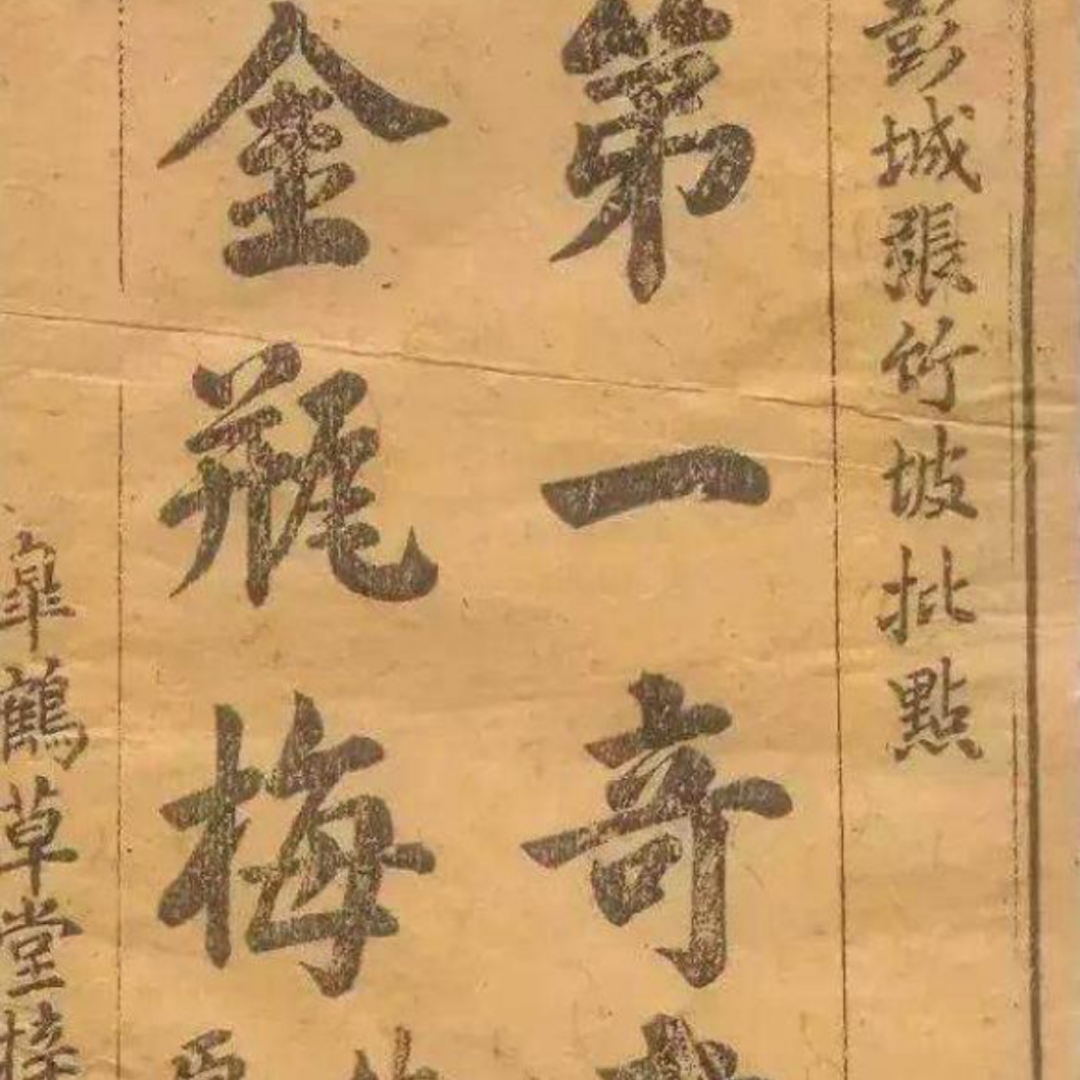 彭城張竹坡批點
第一奇
金瓶梅
皐鶴草堂梓